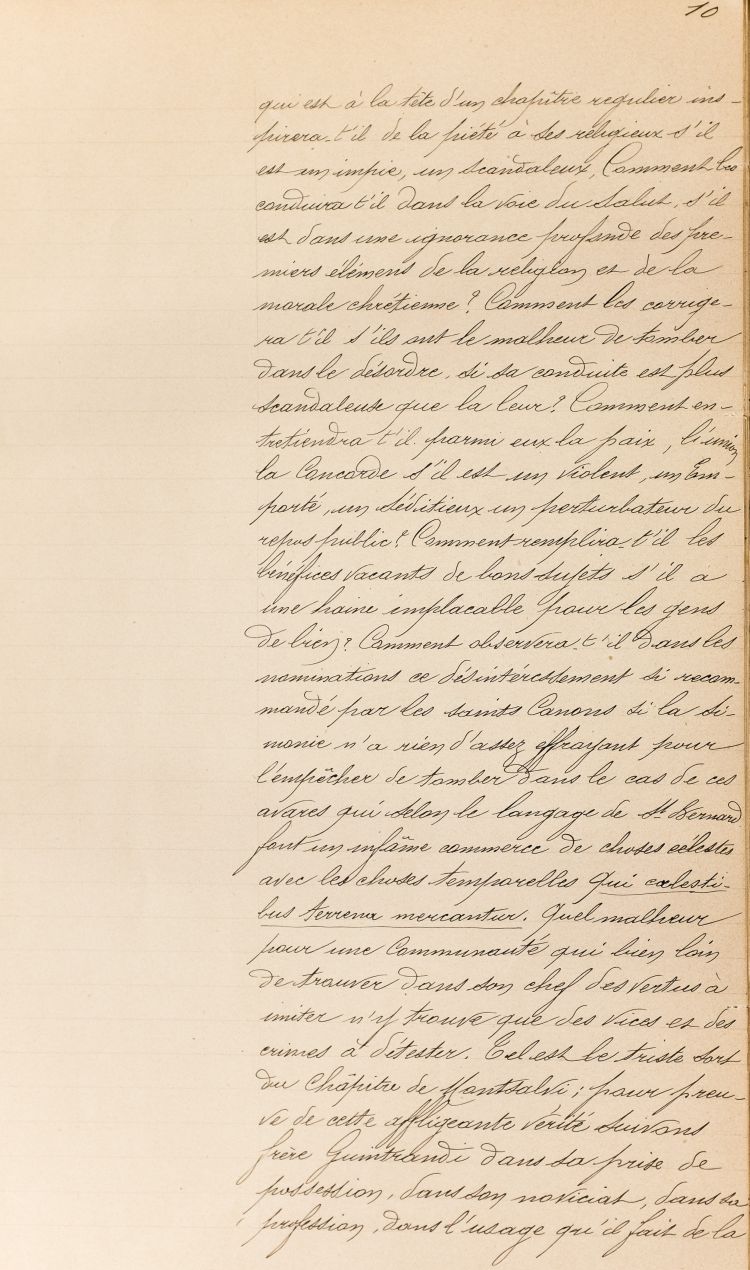 10
qui est à la tête d'un chapître regulier ins-
pirera-t'il de la piété à ses religieux s'il
est un impie, un scandaleux, Comment les
conduira t'il dans la voie du Salut, s'il
est dans une ignorance profonde des pre-
miers élémens de la religion et de la
morale chrétienne? Comment les corrige-
ra t'il s'ils ont le malheur de tomber
dans le désordre, si sa conduite est plus
scandaleuse que la leur? Comment en-
tretiendra t'il parmi eux la paix, l'union
la Concorde s'il est un violent, un Em-
porté, un séditieux un perturbateur du
repos public? Comment remplira-t'il les
bénéfices vacants de bons sujets s'il a
une haine implacable pour les gens
de bien? Comment observera-t'il dans les
nominations ce désintéressement si recom-
mandé par les saints Canons si la Si-
monie n'a rien d'assez effrayant pour
l'empêcher de tomber dans le cas de ces
avares qui selon le langage de St Bernard
font un infâme commerce de choses célestes
avec les choses temporelles qui cœlesti-
bus terrena mercantur. Quel malheur
pour une Communauté qui bien loin
de trouver dans son chef des vertus à
imiter n'y trouve que des vices et des
crimes à détester. Tel est le triste sort
du Châpitre de Montsalvi; pour preu-
ve de cette affligeante vérité suivons
frère Guintrandi dans sa prise de
possession, dans son noviciat, dans sa
profession, dans l'usage qu'il fait de la